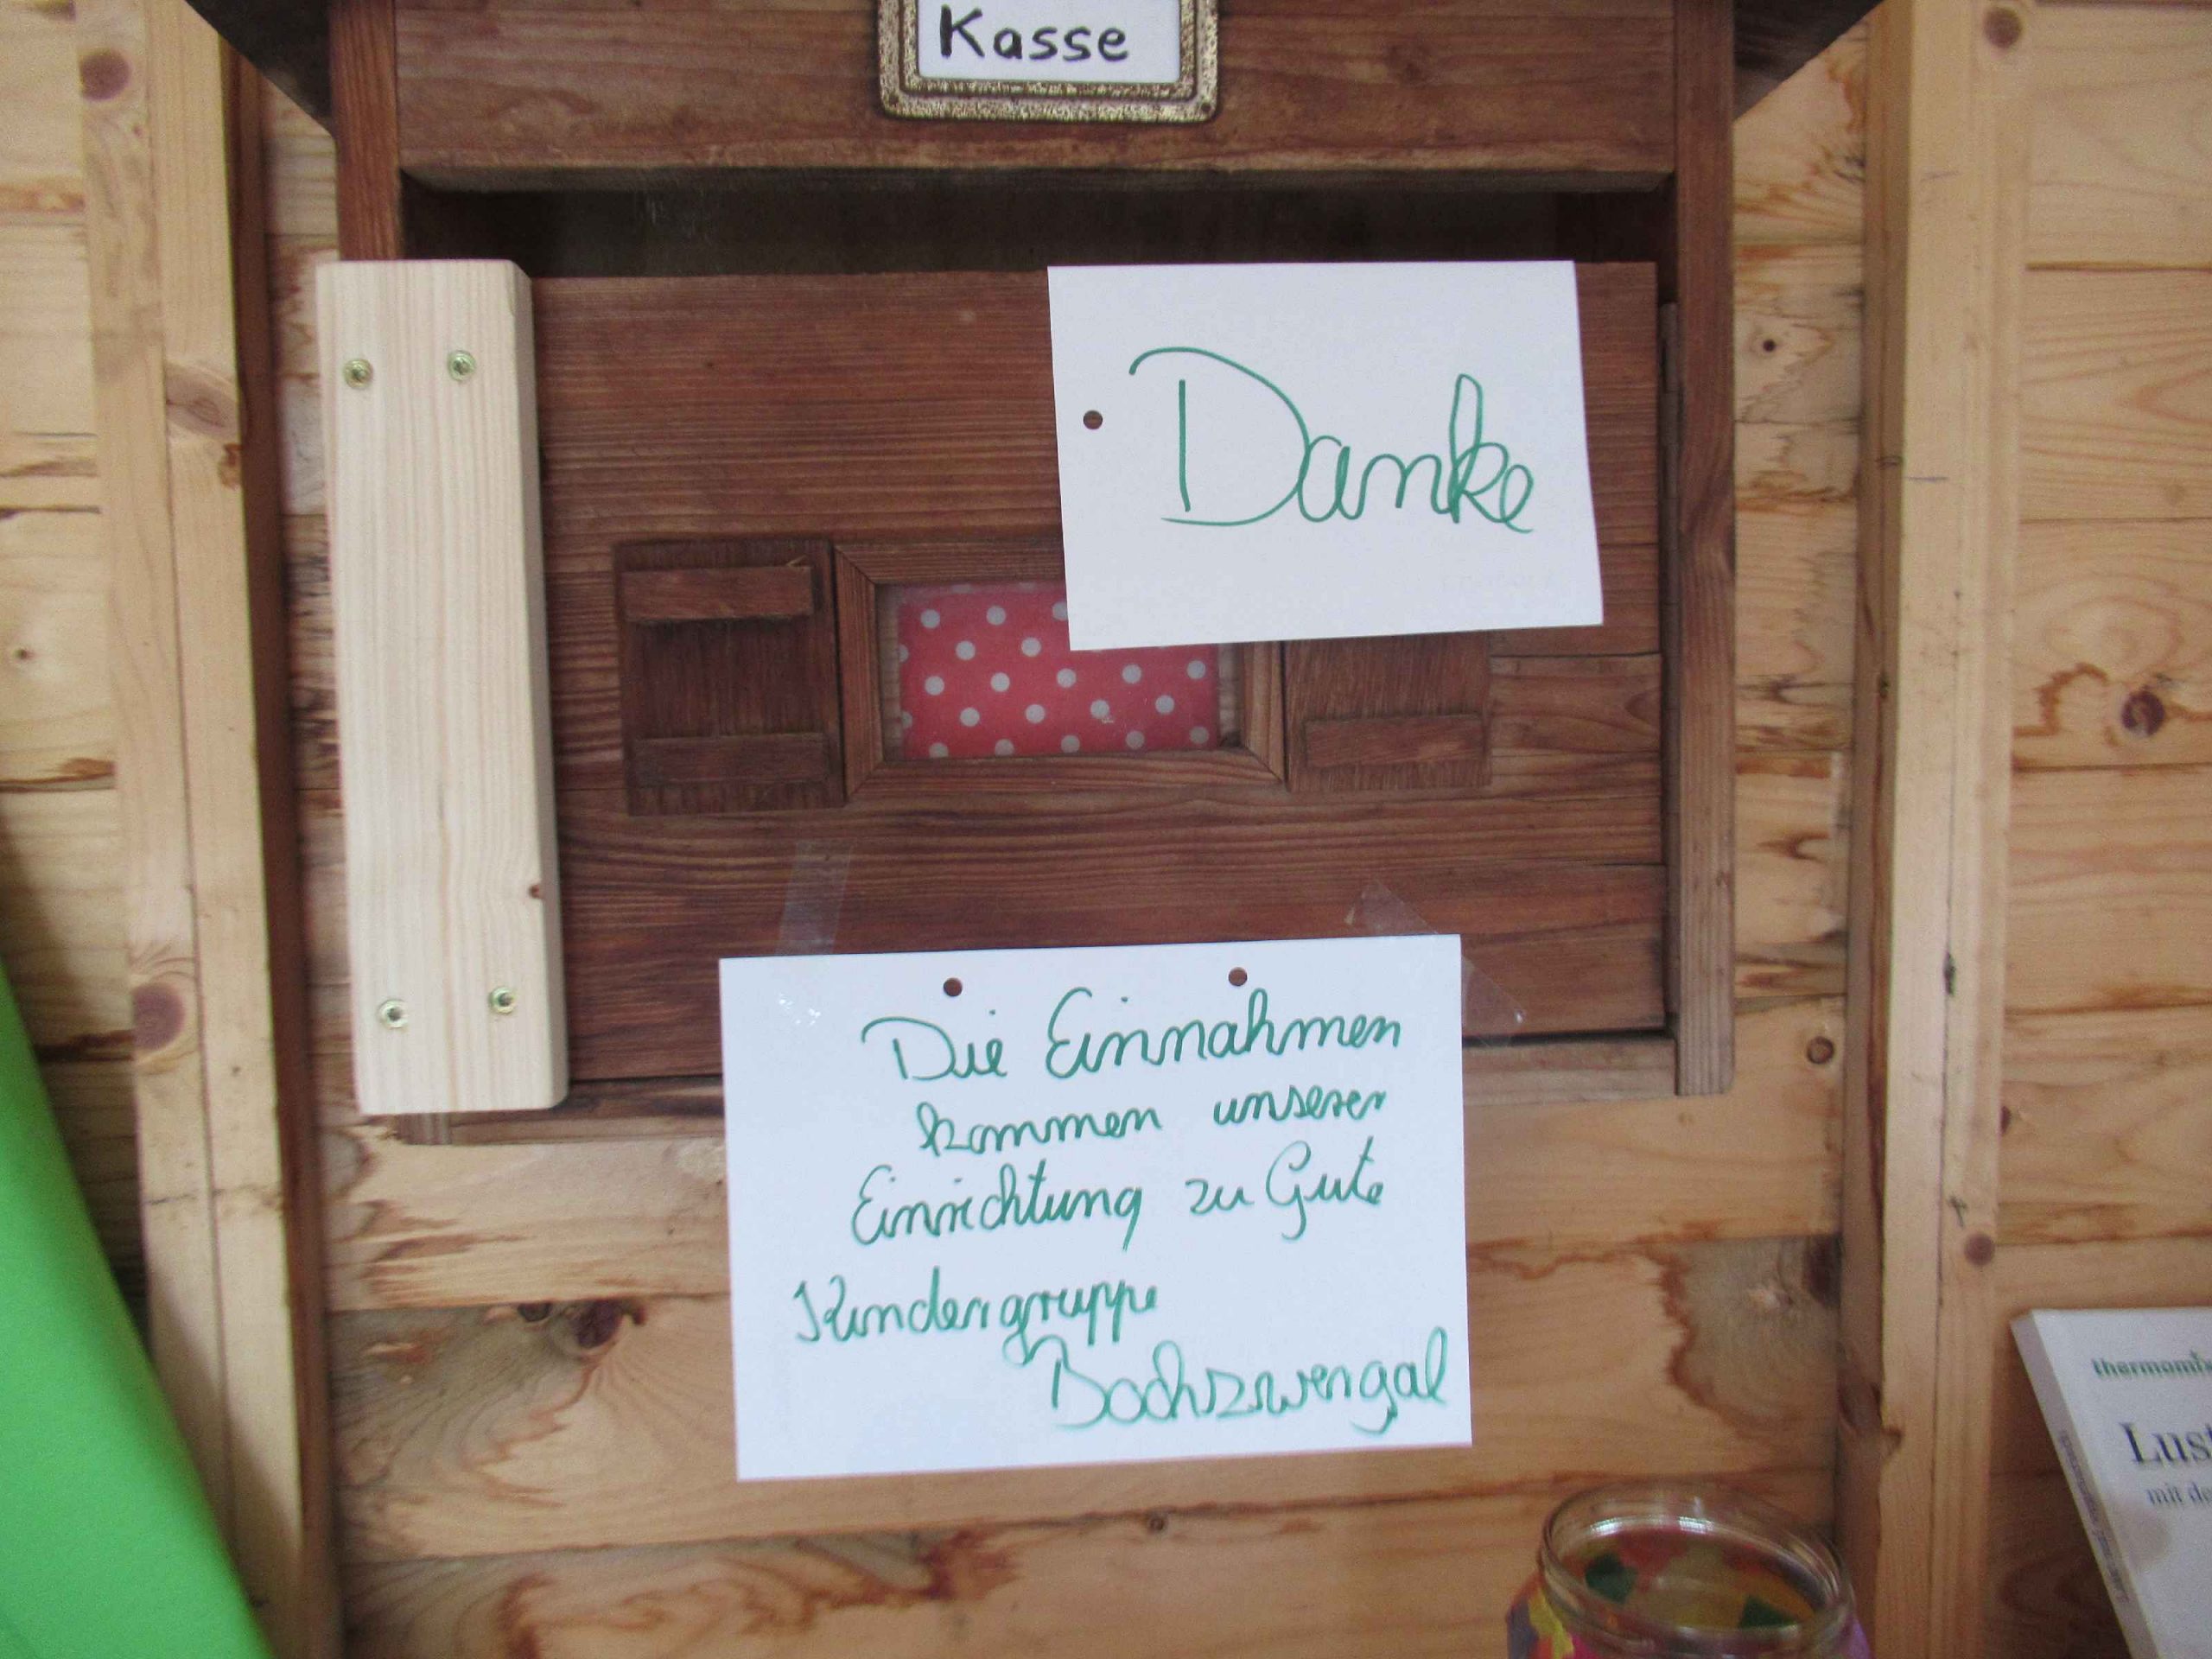 Kasse
Danke
Die Einnahmen
kommen unserer
Einrichtung zu Gute
Kindergruppe
Bochszwengal
thermomix
Lust
mit de